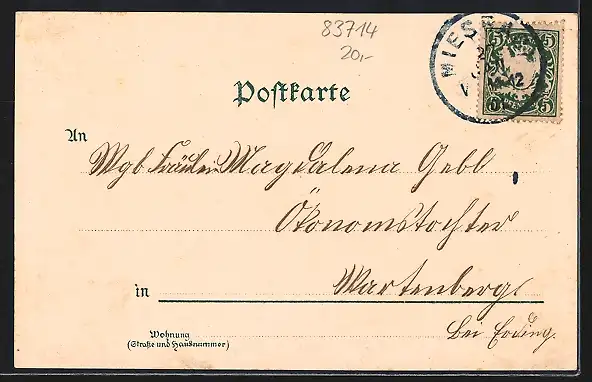 83714
20,-
MIESB
5 5
5 5
Postkarte
An
Wgb. Fräulein Magdalena Gebl
Ökonomstochter
in Wartenberg
Wohnung bei Erding.
(Straße und Hausnummer)